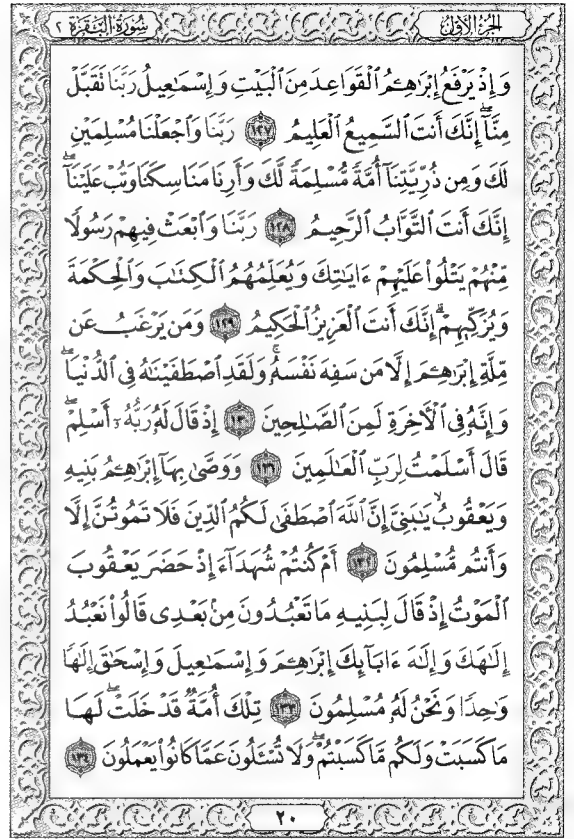 الجزء الأول
سورة البقرة ٢
وَإِذْ يَرْفَعُ إِبْرَٰهِـۧمُ ٱلْقَوَاعِدَ مِنَ ٱلْبَيْتِ وَإِسْمَـٰعِيلُ رَبَّنَا تَقَبَّلْ
مِنَّآ ۖ إِنَّكَ أَنتَ ٱلسَّمِيعُ ٱلْعَلِيمُ ١٢٧ رَبَّنَا وَٱجْعَلْنَا مُسْلِمَيْنِ
لَكَ وَمِن ذُرِّيَّتِنَآ أُمَّةً مُّسْلِمَةً لَّكَ وَأَرِنَا مَنَاسِكَنَا وَتُبْ عَلَيْنَآ ۖ
إِنَّكَ أَنتَ ٱلتَّوَّابُ ٱلرَّحِيمُ ١٢٨ رَبَّنَا وَٱبْعَثْ فِيهِمْ رَسُولًا
مِّنْهُمْ يَتْلُوا۟ عَلَيْهِمْ ءَايَـٰتِكَ وَيُعَلِّمُهُمُ ٱلْكِتَـٰبَ وَٱلْحِكْمَةَ
وَيُزَكِّيهِمْ ۚ إِنَّكَ أَنتَ ٱلْعَزِيزُ ٱلْحَكِيمُ ١٢٩ وَمَن يَرْغَبُ عَن
مِّلَّةِ إِبْرَٰهِـۧمَ إِلَّا مَن سَفِهَ نَفْسَهُۥ ۚ وَلَقَدِ ٱصْطَفَيْنَـٰهُ فِى ٱلدُّنْيَا ۖ
وَإِنَّهُۥ فِى ٱلْأَخِرَةِ لَمِنَ ٱلصَّـٰلِحِينَ ١٣٠ إِذْ قَالَ لَهُۥ رَبُّهُۥٓ أَسْلِمْ ۖ
قَالَ أَسْلَمْتُ لِرَبِّ ٱلْعَـٰلَمِينَ ١٣١ وَوَصَّىٰ بِهَآ إِبْرَٰهِـۧمُ بَنِيهِ
وَيَعْقُوبُ يَـٰبَنِىَّ إِنَّ ٱللَّهَ ٱصْطَفَىٰ لَكُمُ ٱلدِّينَ فَلَا تَمُوتُنَّ إِلَّا
وَأَنتُم مُّسْلِمُونَ ١٣٢ أَمْ كُنتُمْ شُهَدَآءَ إِذْ حَضَرَ يَعْقُوبَ
ٱلْمَوْتُ إِذْ قَالَ لِبَنِيهِ مَا تَعْبُدُونَ مِنۢ بَعْدِى قَالُوا۟ نَعْبُدُ
إِلَـٰهَكَ وَإِلَـٰهَ ءَابَآئِكَ إِبْرَٰهِـۧمَ وَإِسْمَـٰعِيلَ وَإِسْحَـٰقَ إِلَـٰهًا
وَٰحِدًا وَنَحْنُ لَهُۥ مُسْلِمُونَ ١٣٣ تِلْكَ أُمَّةٌ قَدْ خَلَتْ ۖ لَهَا
مَا كَسَبَتْ وَلَكُم مَّا كَسَبْتُمْ ۖ وَلَا تُسْـَٔلُونَ عَمَّا كَانُوا۟ يَعْمَلُونَ ١٣٤
٢٠